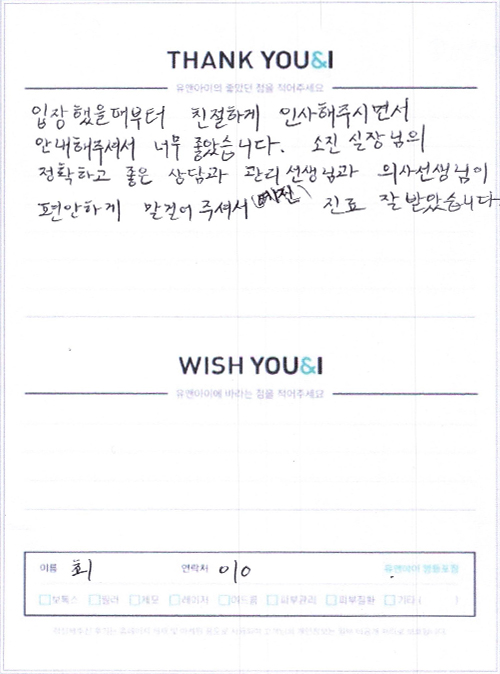 THANK YOU&I
유앤아이의 좋았던 점을 적어주세요
입장 했을때부터 친절하게 인사해주시면서
안내해주셔서 너무 좋았습니다. 소진 실장님의
정확하고 좋은 상담과 관리선생님과 의사선생님이
편안하게 말걸어 주셔서 진료 잘 받았습니다.
WISH YOU&I
유앤아이에 바라는 점을 적어주세요
이름 최 연락처 010 유앤아이 영등포점
보톡스 필러 제모 레이저 여드름 피부관리 피부질환 기타 ( )